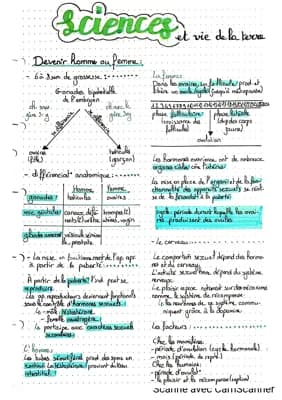 Sciences
et vie de la terre
Devenir homme ou femme:
- 6 à 8 sem de grossesse:
Gonades bipotentielle
de l'embryon
ovaires
(fille)
testicules
(garçon)
- différencia° anatomique:
Homme
Femme
gonades:
testicules
ovaires
voies génitales
glande annexe
vésicule sémina
le, prostate
- La mise en fonctionnement de l'ap. repr
à partir de la puberté:
À partir de la puberté l'ind peut se
reproduire.
Les ap. reproducteurs deviennent fonctionnels
sous le contrôle d'hormones sexuelles:
- mâle: testostérone
- femelle: œstrogène
qui participe aux caractères sexuels
secondaires
L'homme:
Les tubes séminifères prod des spz en
continu. La testostérone provient du tissu
interstitiel.
La femme:
Dans les ovaires, un follicule prod et
libère un ovule/cycle (jusqu'à ménopause)
phase folluculaire
phase lutéale
(croissance des
follicules)
(dvp des corps
jaune)
ovulation
Les hormones ovariennes ont de nombreux
organes cible dont l'utérus.
La mise en place de l'organi et de la fonc-
tionnalité des appareils sexuels se réali-
se de la fécondité à la puberté.
cycle: période durant laquelle les ovai-
res produisent des ovules.
- Le cerveau:
Le comportement sexuel dépend des hormo-
nes et du cerveau.
L'activité sexuelle dépend du système
nerveux.
Le plaisir repose notamment sur des mécanismes
comme le système de récompense.
- les neurones de ce système commu-
niquent grâce à la dopamine.
Les facteurs:
Chez les mammifères:
- période d'ovulation (cycle hormonale)
- mois (période de repro)
Chez les humains:
- période d'ovula°
- le plaisir et la récompense (option)
Scanné avec CamScanner